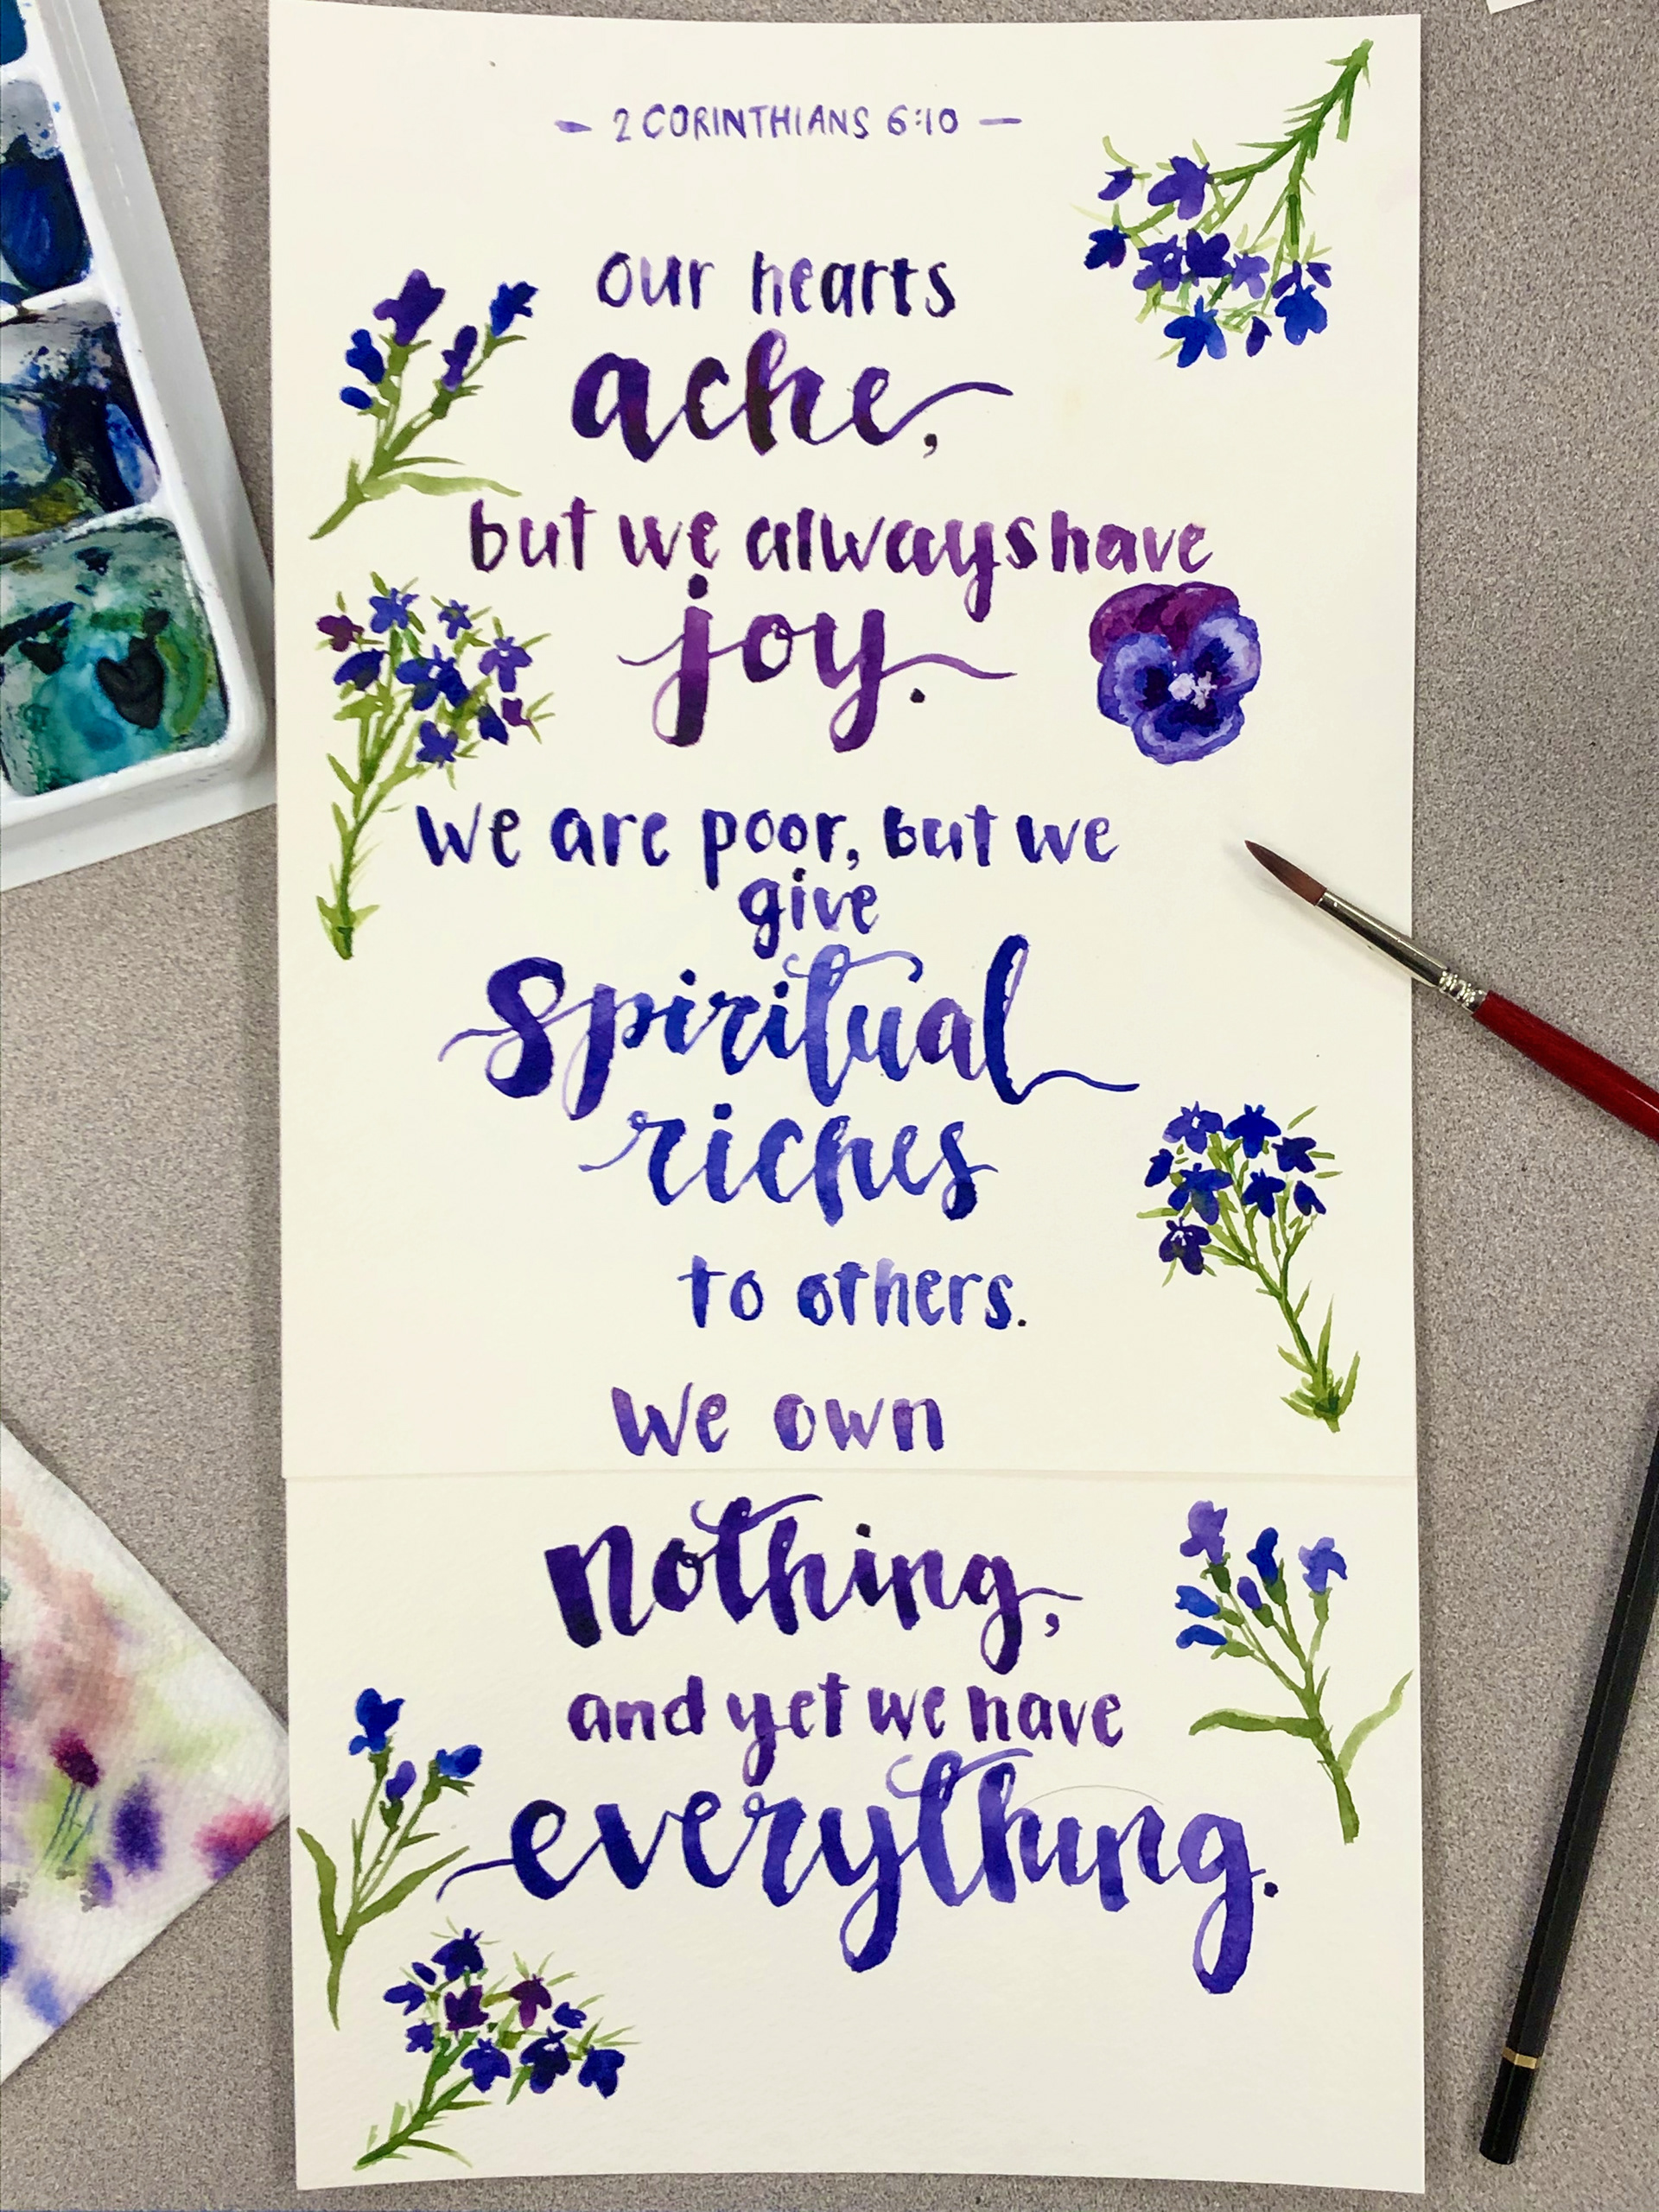 - 2 CORINTHIANS 6:10 -
our hearts
ache,
but we always have
joy.
We are poor, but we
give
Spiritual
riches
to others.
We own
nothing,
and yet we have
everything.